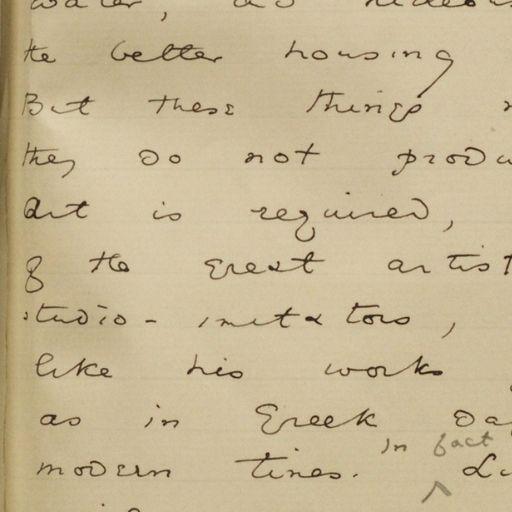 the better housing
But these things
they do not produ
Art is required,
of the great artist
studio-imitators,
like his works
as in Greek Da
in fact
modern times. Lu